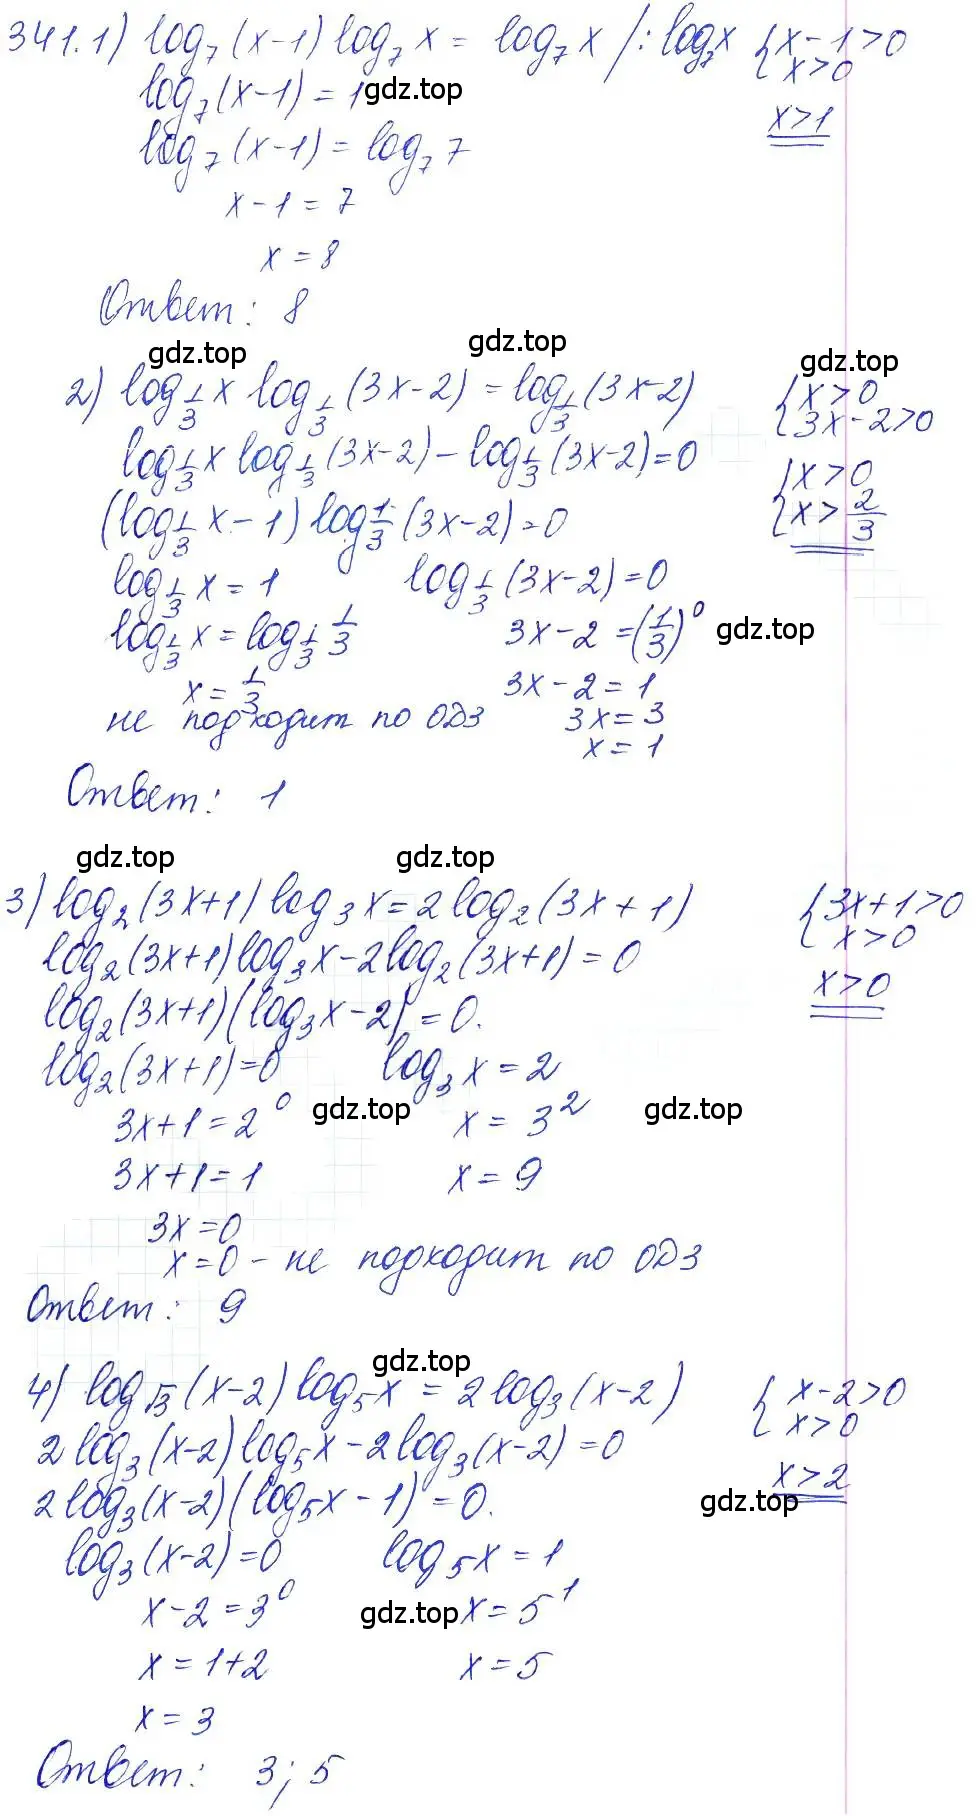 341.1) log₇(x-1) log₇x = log₇x /: log₇x { x-1>0
log₇(x-1) = 1 gdz.top x>0
x>1
log₇(x-1) = log₇7
x-1 = 7
x = 8
Ответ: 8
gdz.top gdz.top gdz.top
2) log_{1/3} x log_{1/3} (3x-2) = log_{1/3} (3x-2) { x>0
3x-2>0
log_{1/3} x log_{1/3} (3x-2) - log_{1/3} (3x-2) = 0 { x>0
x> 2/3
(log_{1/3} x - 1) log_{1/3} (3x-2) = 0
log_{1/3} x = 1 log_{1/3} (3x-2) = 0
log_{1/3} x = log_{1/3} 1/3 3x-2 = (1/3)⁰ gdz.top
x = 1/3 3x-2 = 1
не подходит по ОДЗ 3x = 3
x = 1
Ответ: 1
gdz.top gdz.top
3) log₂(3x+1) log₃x = 2log₂(3x+1) { 3x+1>0
x>0
log₂(3x+1) log₃x - 2log₂(3x+1) = 0
x>0
log₂(3x+1)(log₃x-2) = 0.
log₂(3x+1)=0 log₃x = 2
3x+1 = 2⁰ gdz.top x = 3² gdz.top
3x+1 = 1 x = 9
3x = 0
x = 0 - не подходит по ОДЗ
Ответ: 9
gdz.top
4) log_{√3} (x-2) log₅x = 2log₃(x-2) { x-2>0
x>0
2log₃(x-2) log₅x - 2log₃(x-2) = 0
x>2
2log₃(x-2)(log₅x - 1) = 0. gdz.top
log₃(x-2) = 0 log₅x = 1
x-2 = 3⁰ gdz.top x = 5¹
x = 1+2 x = 5
x = 3
Ответ: 3; 5